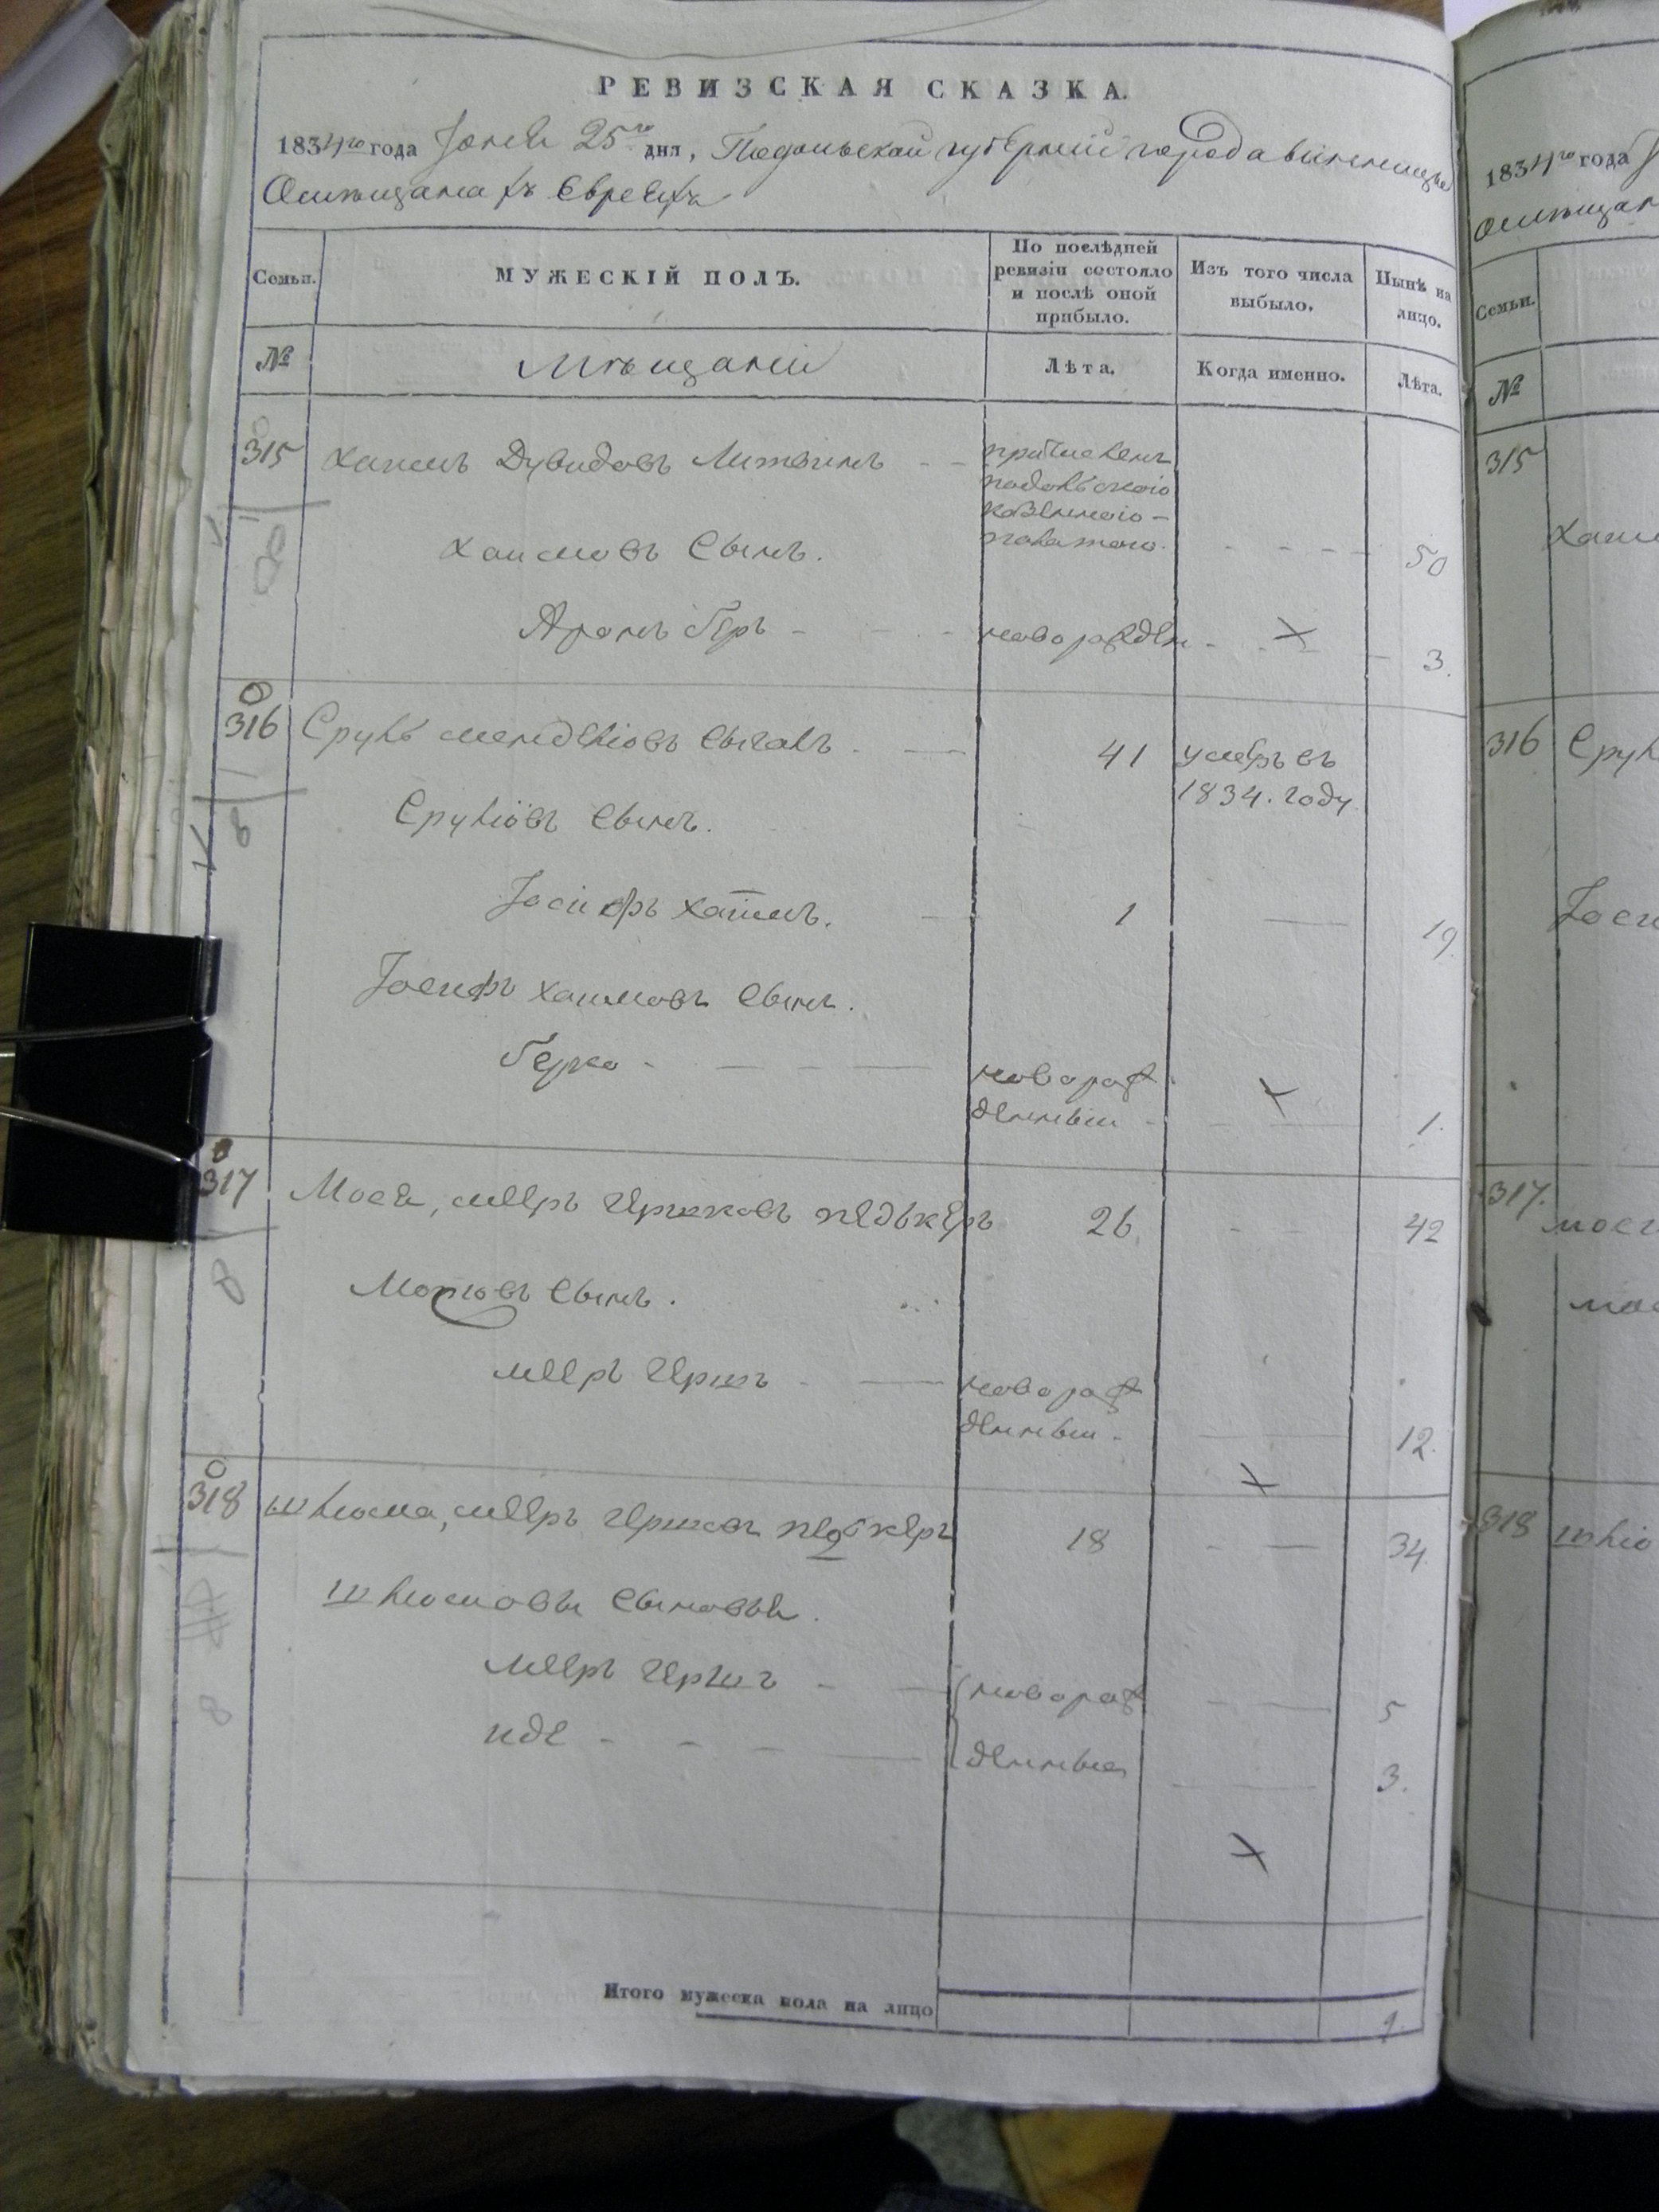 РЕВИЗСКАЯ СКАЗКА.
1834го года Іюня 25го дня, Подольской губерніи города винницы
О мѣщанахъ Евреяхъ
Семьи.
МУЖЕСКІЙ ПОЛЪ.
По послѣдней ревизіи состояло и послѣ оной прибыло.
Изъ того числа выбыло.
Нынѣ на лицо.
№
Мѣщаніи
Лѣта.
Когда именно.
Лѣта.
315 Хаимъ Дувидовъ Литвинъ причисленъ
подольскою
казенною
палатою. 50
Хаимовъ Сынъ.
Аронъ беръ новорожден 3
316 Сруль мендліовъ 41 умеръ въ
1834. году
Сруліовъ Сынъ.
Іосифъ хаимъ. 1 19
Іосифъ хаимовъ Сынъ.
берко новорож
денныи 1.
317 Мосе, мееръ гершковъ 26 42
Мошковъ Сынъ.
мееръ гершъ новорож
денныи 12.
318 шліома, мееръ гершковъ 18 34
шліомовы Сыновья.
мееръ гершъ новорож 5
иде денные 3.
Итого мужеска пола на лицо
1834го года
Семьи.
№
315
Хаим
316 Срул
Іоси
317.
мосе
318 шліо